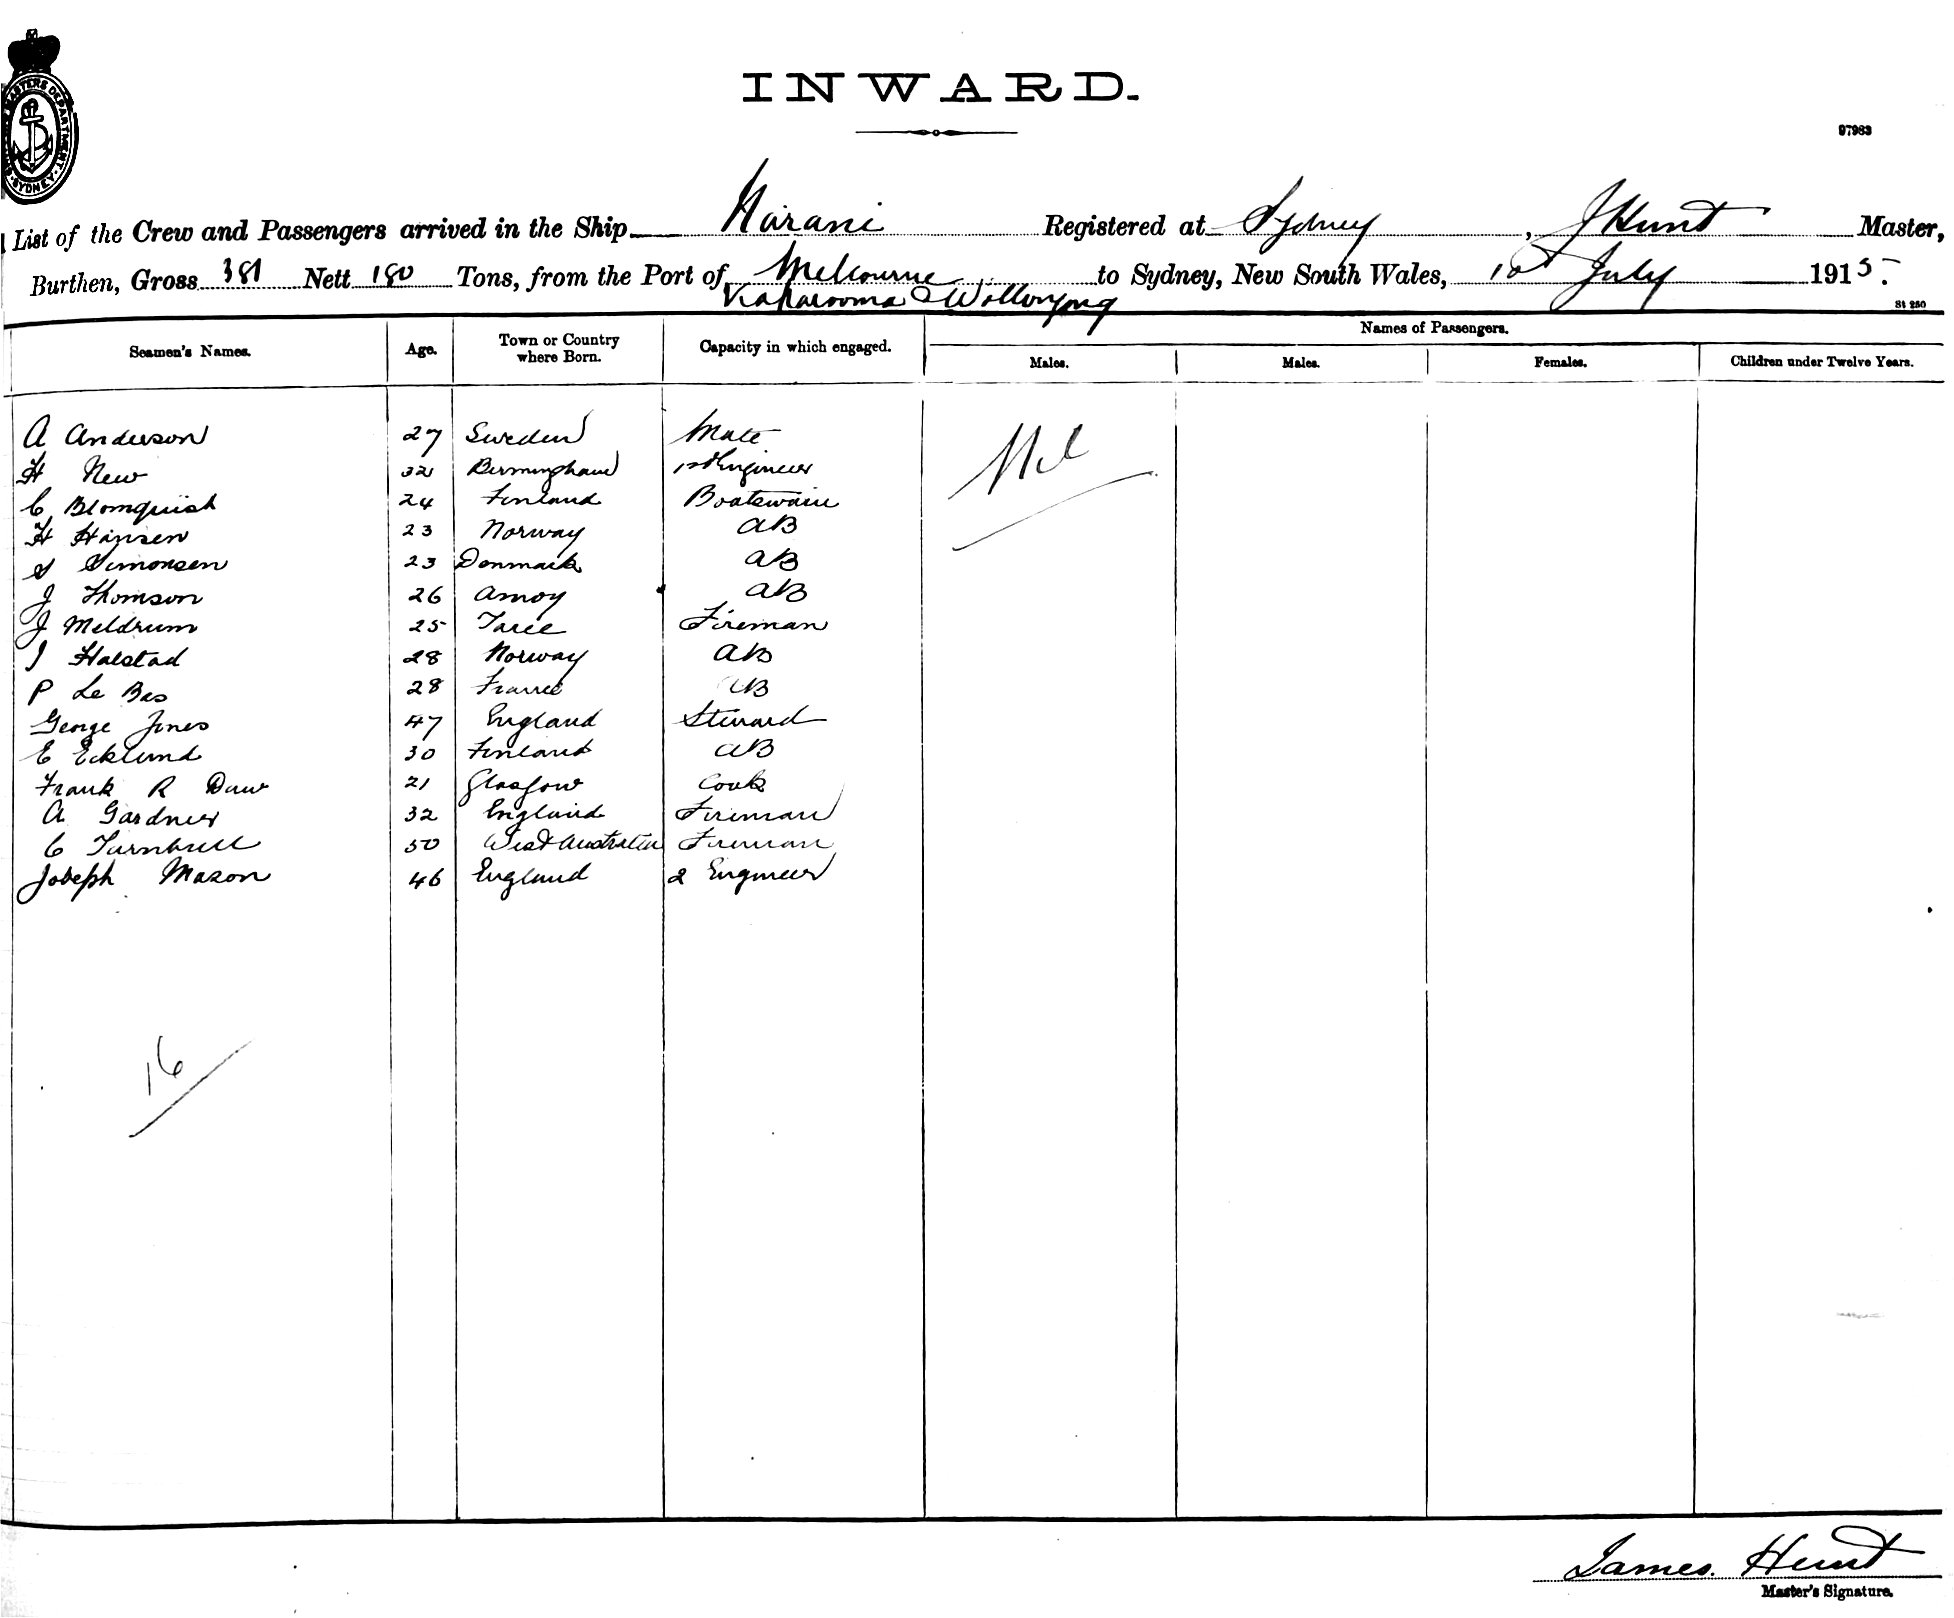 MASTERS DEPARTMENT SYDNEY
INWARD.
97983
List of the Crew and Passengers arrived in the Ship Narani Registered at Sydney, J Hunt Master,
Burthen, Gross 381 Nett 180 Tons, from the Port of Melbourne to Sydney, New South Wales, 1st July 1915.
Via & Wollongong
St 250
Seamen's Names. Age. Town or Country where Born. Capacity in which engaged. Names of Passengers.
Males. Males. Females. Children under Twelve Years.
A Anderson 27 Sweden Mate Nil
H New 32 Birmingham 1st Engineer
C Blomquist 24 Finland Boatswain
H Hansen 23 Norway AB
S Simonsen 23 Denmark AB
J Thomson 26 Amoy AB
J Meldrum 25 Taree Fireman
J Halstad 28 Norway AB
P Le Bas 28 France AB
George Jones 47 England Steward
E Ecklund 30 Finland AB
Frank R Daw 21 Glasgow Cook
A Gardner 32 England Fireman
C Turnbull 50 West Australia Fireman
Joseph Mason 46 England 2 Engineer
16
James Hunt
Master's Signature.